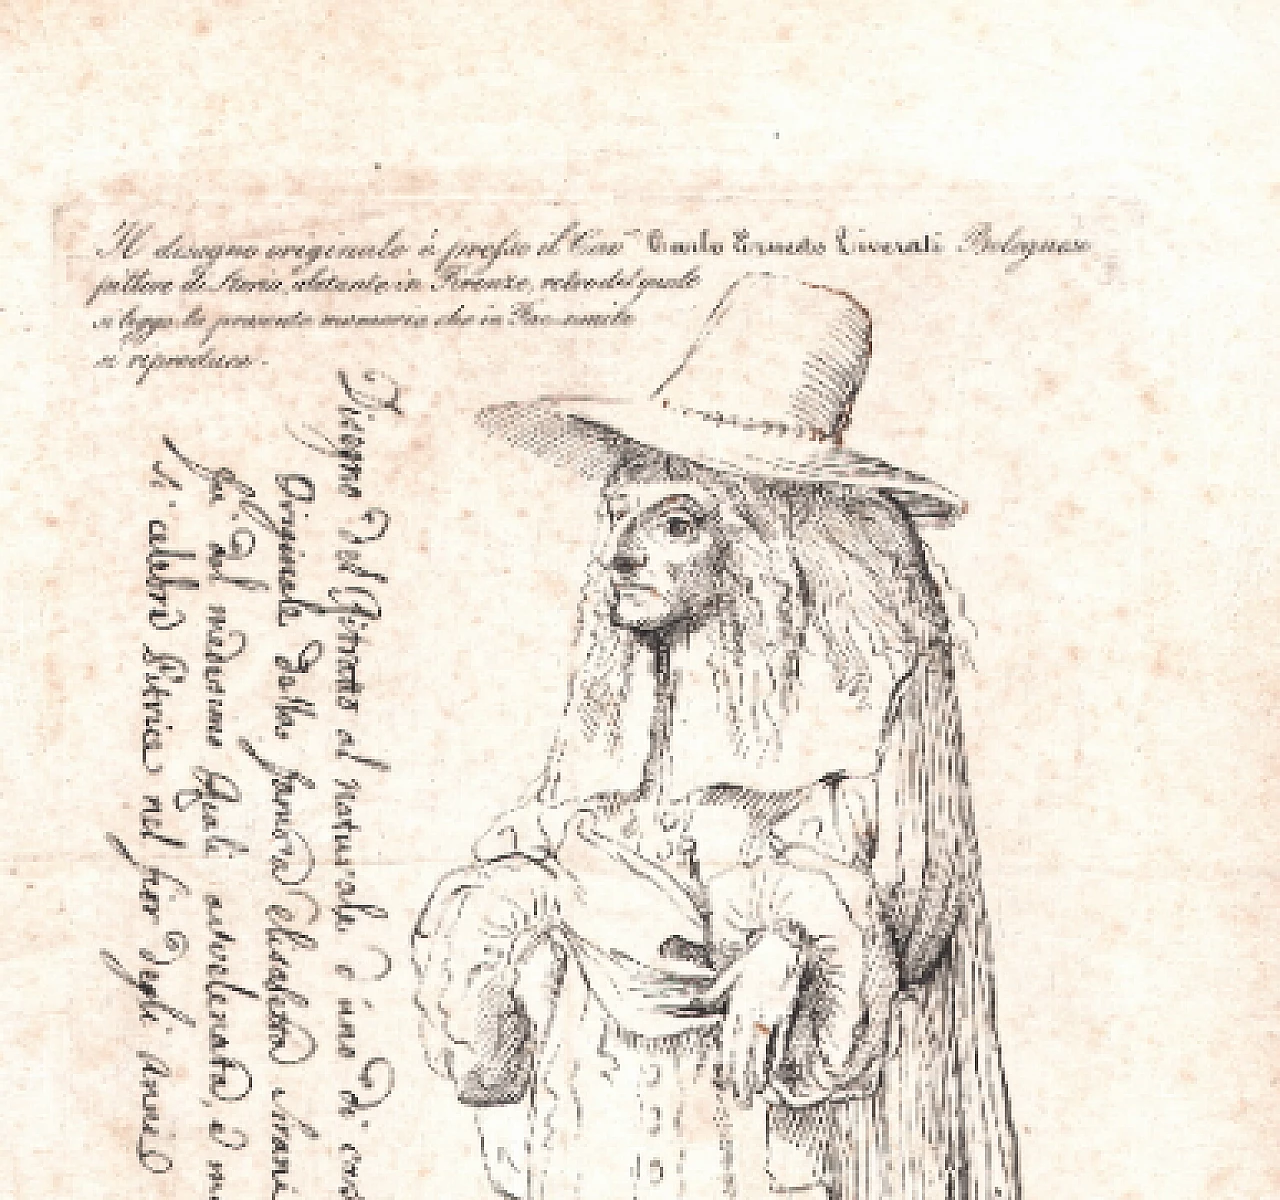 Il disegno originale è presso il Cav.r Carlo Ernesto Liverati Bolognese
pittore di Storia, abitante in Firenze, retro del quale
si legge la presente memoria che in Fac-simile
si riproduce.
Disegno Del Ritratto al naturale
Originale Della famosa Elisabetta
fu Dal medesimo Avvelenata, e
di celebre Pittrice nel fior Degli Anni